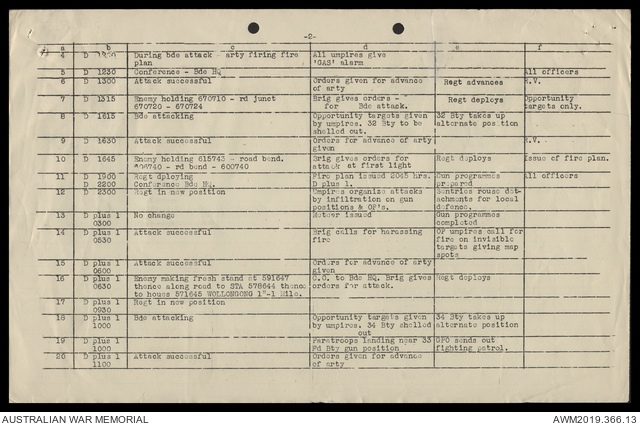 -2-
a b c d e f
4 D During bde attack - arty firing fire All umpires give
plan 'GAS' alarm
5 D 1230 Conference - Bde HQ All officers
6 D 1300 Attack successful Orders given for advance Regt advances R.V.
of arty
7 D 1315 Enemy holding 670710 - rd junct Brig gives orders - Regt deploys Opportunity
670720 - 670724 for Bde attack. targets only.
8 D 1615 Bde attacking Opportunity targets given 32 Bty takes up
by umpires. 32 Bty to be alternate position
shelled out.
9 D 1630 Attack successful Orders for advance of arty R.V.
given
10 D 1645 Enemy holding 615743 - road bend. Brig gives orders for Regt deploys Issue of fire plan.
- rd bend - 600740 attack at first light
11 D 1900 Regt dploying Fire plan issued 2045 hrs. Gun programmes All officers
D 2200 Conference Bde HQ. D plus 1. prepared
12 D 2300 Regt in new position Umpires organize attacks Sentries rouse det-
by infiltration on gun achments for local
positions & OP's. defence.
13 D plus 1 No change Meteor issued Gun programmes
0300 completed
14 D plus 1 Attack successful Brig calls for harassing OP umpires call for
0530 fire fire on invisible
targets giving map
spots
15 D plus 1 Attack successful Orders for advance of arty
0600 given
16 D plus 1 Enemy making fresh stand at 591647 C.O. to Bde HQ. Brig gives Regt deploys
0630 thence along road to STA 578644 thence orders for attack.
to house 571645 WOLLONGONG 1"-1 Mile.
17 D plus 1 Regt in new position
0930
18 D plus 1 Bde attacking Opportunity targets given 34 Bty takes up
1000 by umpires. 34 Bty shelled alternate position
out
19 D plus 1 Paratroops landing near 33 GPO sends out
1000 Fd Bty gun position fighting patrol.
20 D plus 1 Attack successful Orders given for advance
1100 of arty
AUSTRALIAN WAR MEMORIAL AWM2019.366.13